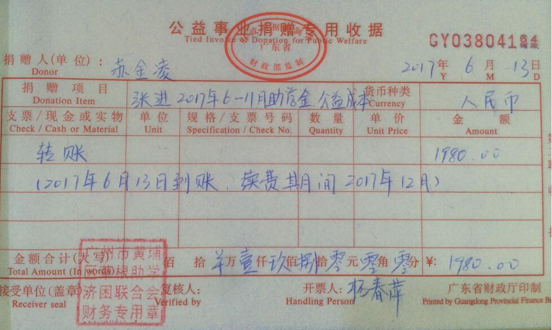 公益事业捐赠专用收据
Tied Invoice of Donation for Public Welfare
广东省
财政部监制
GY03804194
捐赠人(单位): 苏金凌 2017年 6月 13日
Donor Y M D
捐赠项目 张进2017年6-11月助学金 公益成本 货币种类 人民币
Donation Item Currency
支票/现金或实物 单位 规格/支票号码 数量 单价 金额
Check / Cash or Material Unit Specification / Check No. Quantity Unit Price Amount
转账 1980.00
(2017年6月13日到账、续费其月间2017年12月)
金额合计(大写) 佰 拾 万壹仟玖佰捌拾零元零角零分 ¥: 1980.00
Total Amount (In words)
接受单位(盖章) 复核人: 开票人: 杨春萍 广东省财政厅印制
Receiver seal Verified by Handling Person Printed by Guangdong Provincial Finance
广州市黄埔
助学
济困联合会
财务专用章